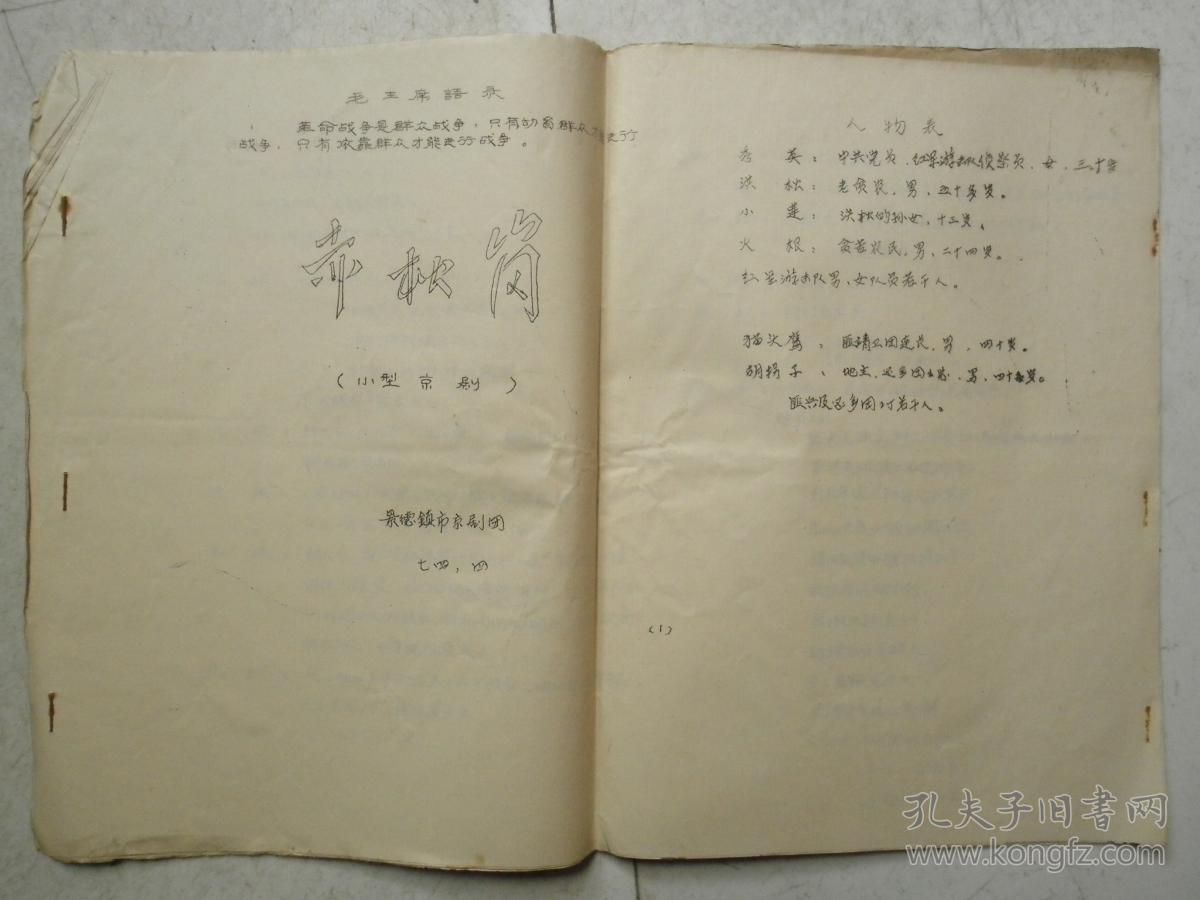 毛主席語录
革命战争是群众战争，只有动员群众才能进行
战争，只有依靠群众才能进行战争。
赤松岗
（小型京剧）
景德鎮市京剧团
七四，四
人物表
秀英：中共党员，红军游击队侦察员，女，三十岁
洪松：老贫农，男，五十多岁。
小莲：洪松的孙女，十三岁。
火根：贫苦农民，男，二十四岁。
红军游击队男、女队员若干人。
猫头鹰：匪靖卫团连长，男，四十岁。
胡拐子：地主，还乡团，男，四十多岁。
匪兵及还乡团丁若干人。
(1)
孔夫子旧書网
www.kongfz.com